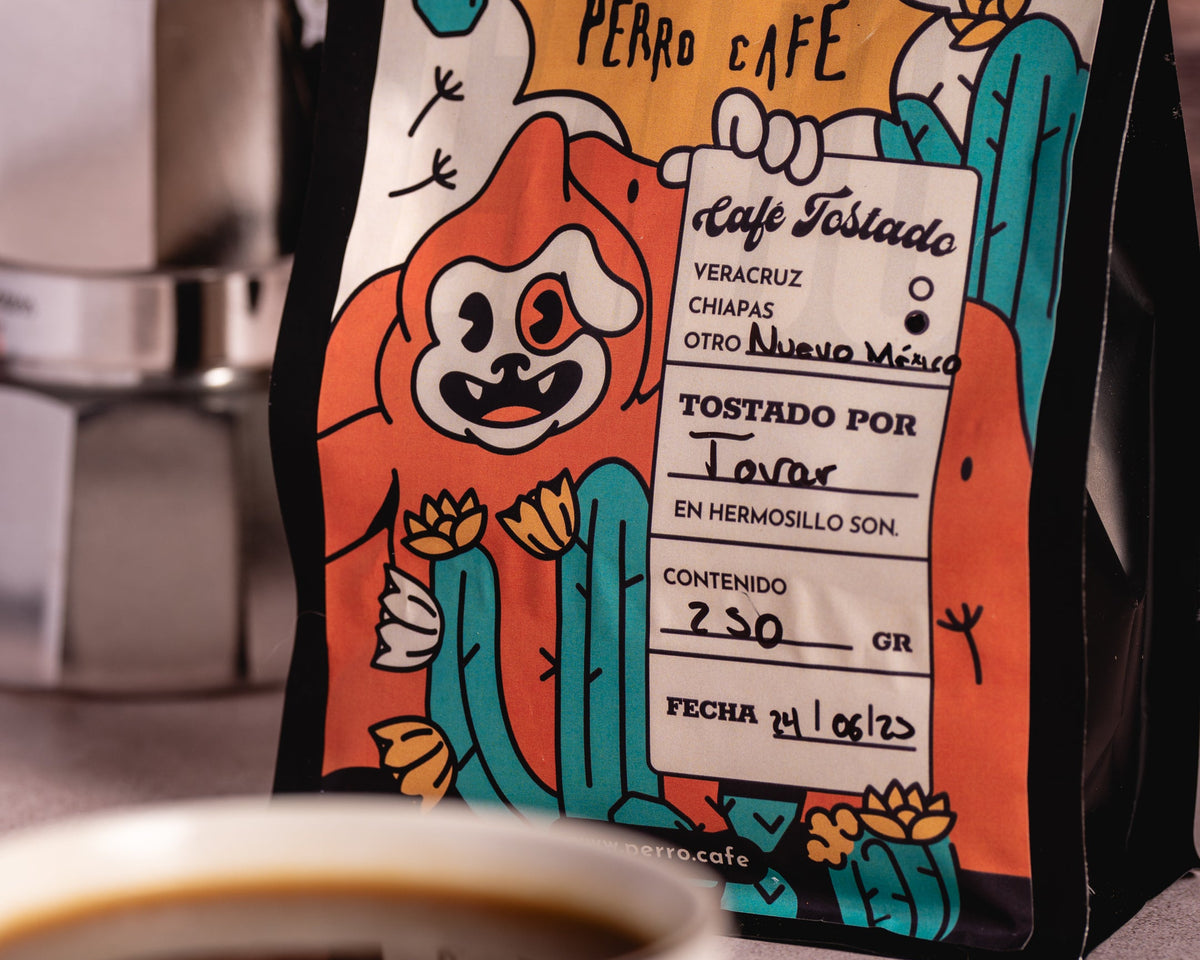 PERRO CAFÉ
Café Tostado
VERACRUZ
CHIAPAS
OTRO Nuevo México
TOSTADO POR
Tovar
EN HERMOSILLO SON.
CONTENIDO
250 GR
FECHA 24/06/23
www.perro.cafe